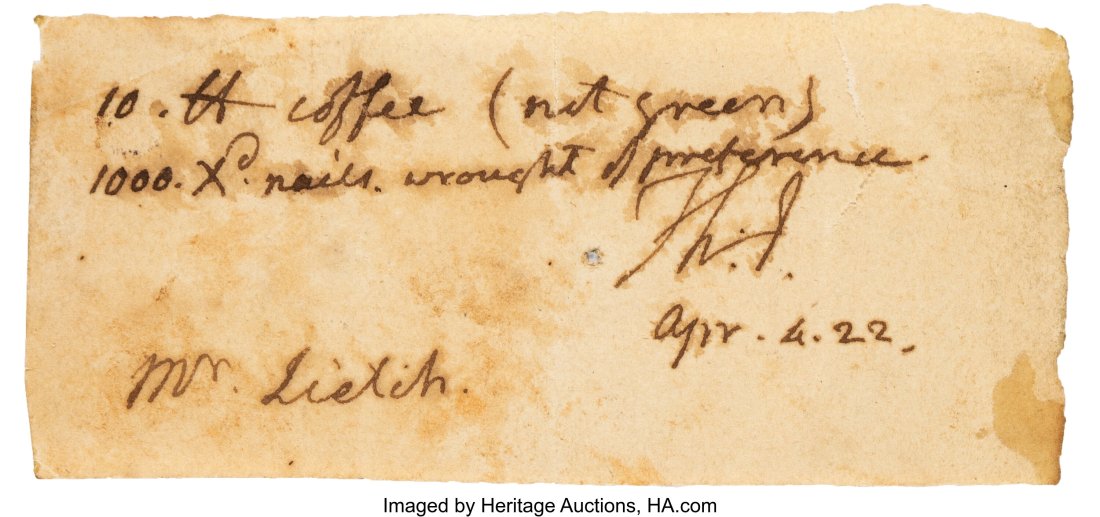 10. ℔ coffee (not green)
1000. Xᵈ. nails. wrought of preference.
Th. J.
Apr. 4. 22.
Mr. Lietch.
Imaged by Heritage Auctions, HA.com